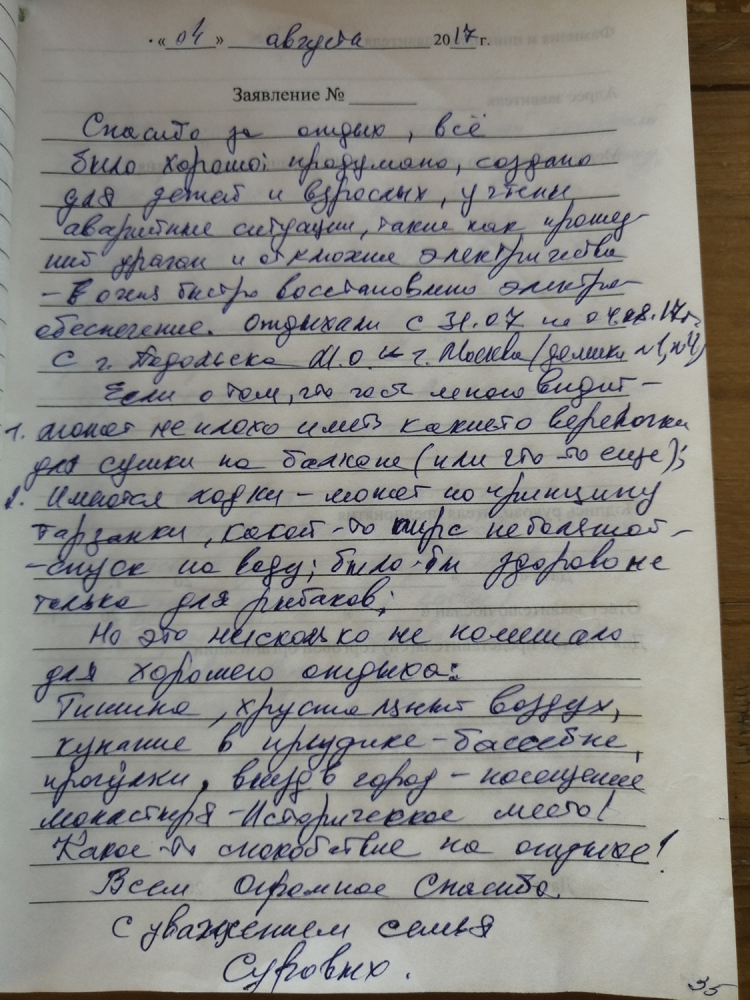 «04» августа 2017 г.
Заявление №
Спасибо за отдых, всё
было хорошо; продумано, создано
для детей и взрослых, учтены
аварийные ситуации, такие как прошед-
ший ураган и отключние электричества
- очень быстро восстановлено электро-
обеспечение. Отдыхали с 31.07 по 04.08.17г.
с г. Подольска М.О. и г. Москва (домики №1, №4)
Если о том, что гость много видит -
1. может не плохо иметь какието веревочки
для сушки на балконе (или что-то еще);
2. Имеются лодки - может по принципу
тарзанки, какой-то пирс небольшой -
- спуск на воду; было-бы здорово не
только для рыбаков;
Но это нисколько не помешало
для хорошего отдыха:
Тишина, хрустальный воздух,
купание в прудике - бассейне,
прогулки, выезд в город - посещение
монастыря - Историческое место!
Какое-то спокойствие на отдыхе!
Всем Огромное Спасибо.
С уважением семья
Суровых.
35